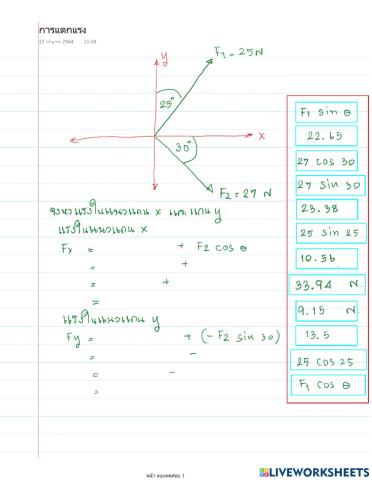 การแตกแรง
22 กรกฎาคม 2564 11:18
y
F1 = 25 N
25°
x
30°
F2 = 27 N
จงหาแรงในแนวแกน x และแกน y
แรงในแนวแกน x
Fx = + F2 cos θ
= +
= +
=
แรงในแนวแกน y
Fy = + (- F2 sin 30)
= -
= -
=
F1 sin θ
22.65
27 cos 30
27 sin 30
23.38
25 sin 25
10.56
33.94 N
9.15 N
13.5
25 cos 25
F1 cos θ
หน้า แบบทดสอบ 1
LIVEWORKSHEETS